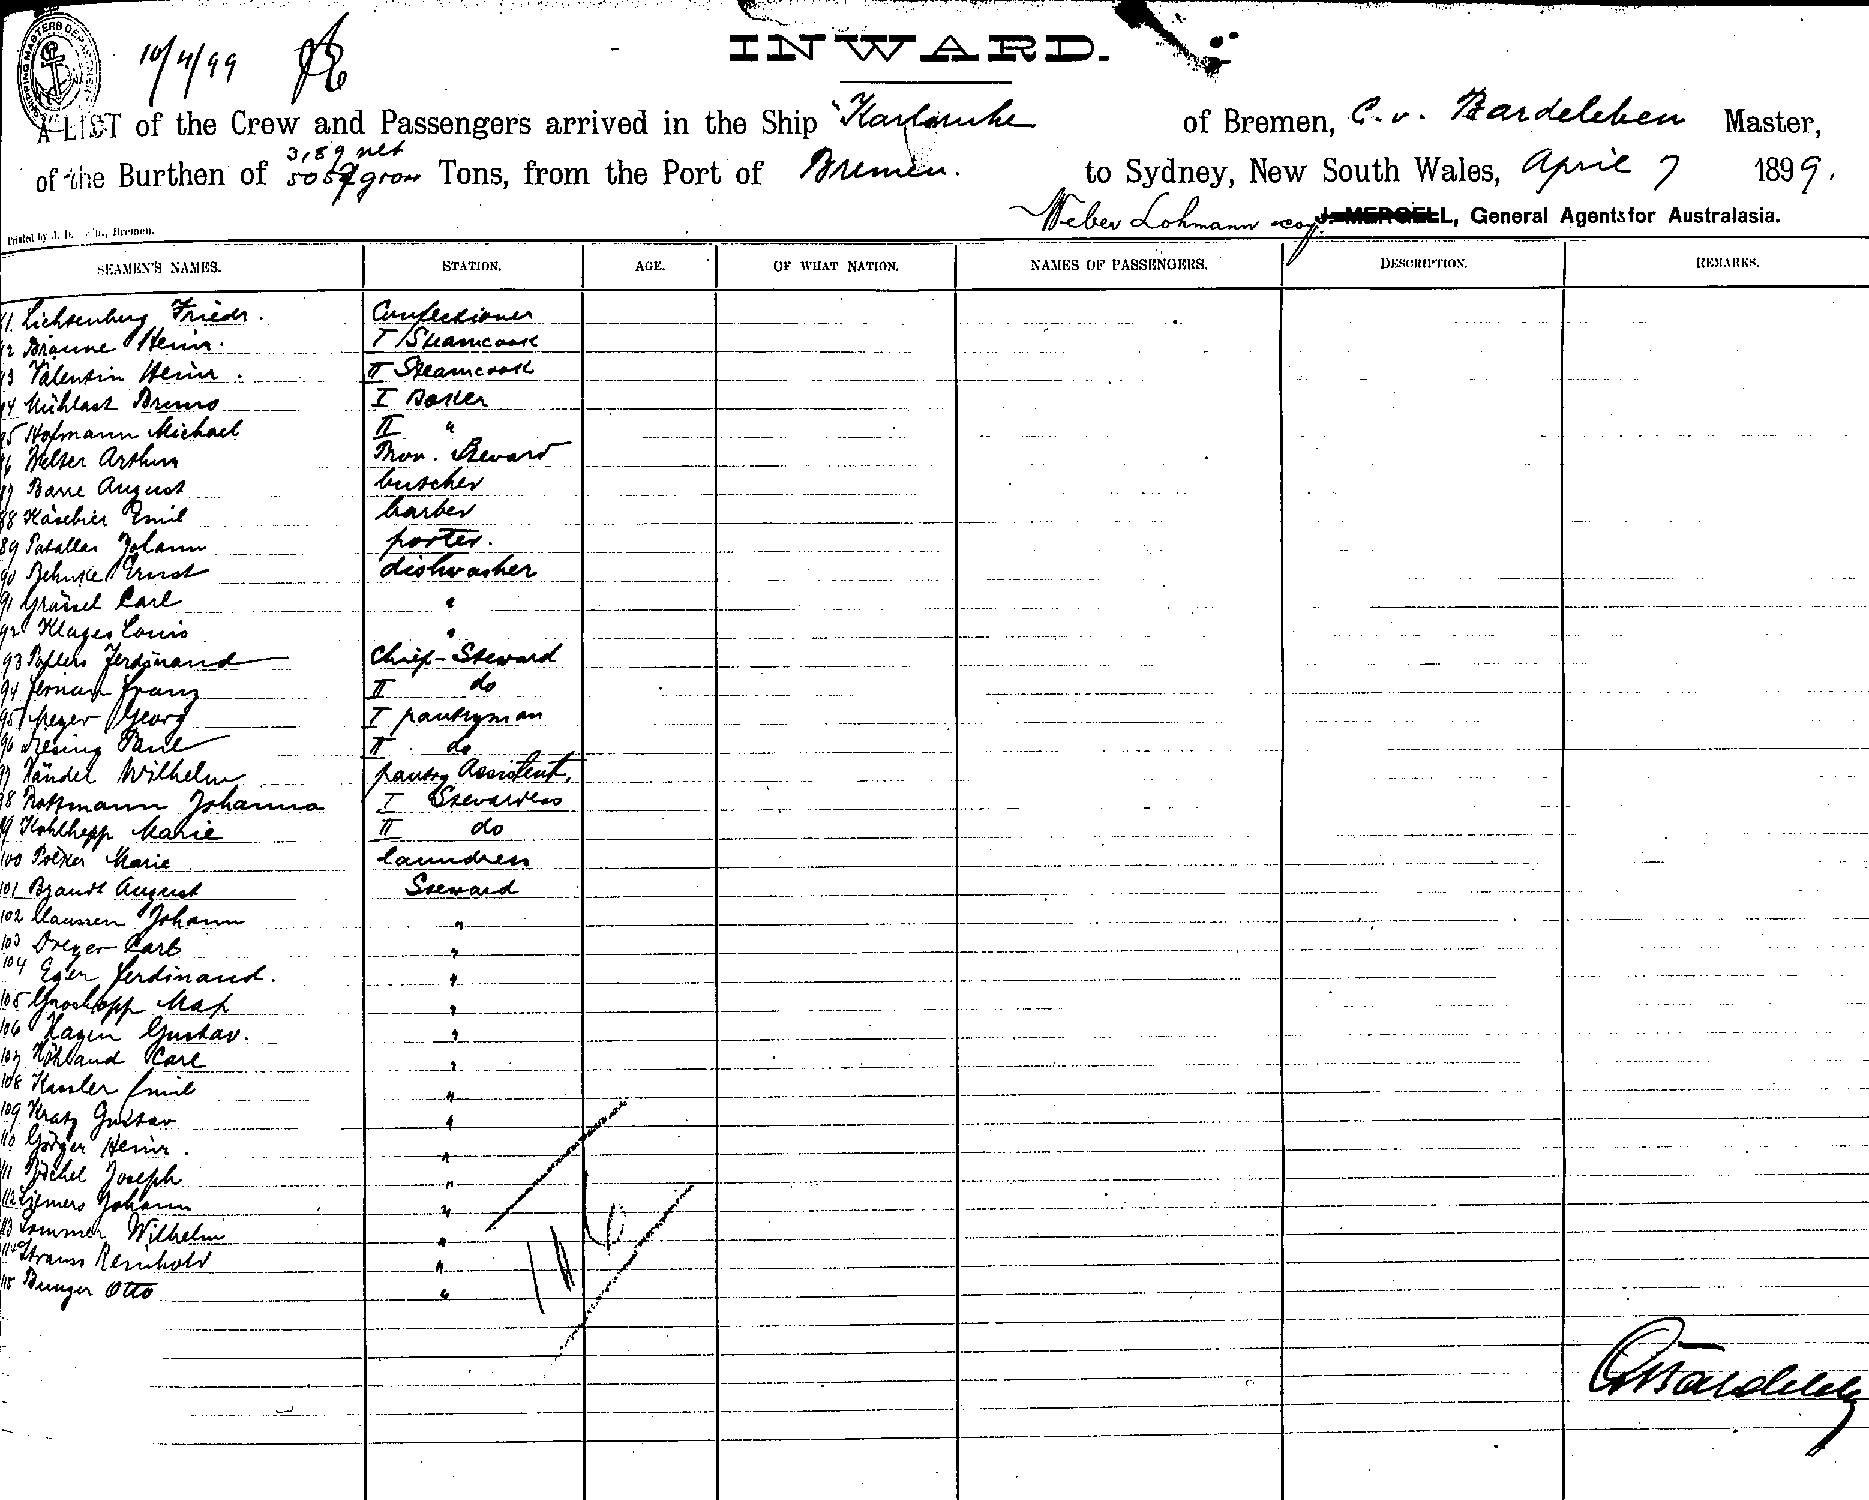 SHIPPING MASTERS DEPARTMENT
10/4/99
INWARD.
A LIST of the Crew and Passengers arrived in the Ship "Karlsruhe of Bremen, C. v. Bardeleben Master,
3,89 net
of the Burthen of 5057 gross Tons, from the Port of Bremen. to Sydney, New South Wales, April 7 1899.
Weber Lohmann & coy. J. MERGELL, General Agents for Australasia.
Printed by J. D. Bremen.
SEAMEN'S NAMES. STATION. AGE. OF WHAT NATION. NAMES OF PASSENGERS. DESCRIPTION. REMARKS.
81. Lichtenberg Friedr. Confectioner
82 Braune Heinr. I Steamcook
83 Valentin Heinr. II Steamcook
84 Mühlast Bruno I Baker
85 Hofmann Michael II "
86 Welter Arthur Prov. Steward
87 Barre August butcher
88 Käsebier Emil barber
89 Patallas Johann porter.
90 Behnke Ernst dishwasher
91 Grässel Carl "
92 Klages Louis "
93 Ferdinand Chief-Steward
94 Franz II do
95 Meyer Georg I pantryman
96 Paul II do
97 Händel Wilhelm pantry Assistent.
98 Rottmann Johanna I Stewardess
99 Kohlhepp Marie II do
100 Marie laundress
101 Brandt August Steward
102 Claussen Johann "
103 Dreyer Carl "
104 Eger Ferdinand. "
105 Max "
106 Hagen Gustav. "
107 Höhland Carl "
108 Kessler Emil "
109 Kratz Gustav "
110 Heinr. "
111 Joseph "
112 Siemers Johann "
113 Sommer Wilhelm "
114 Strauss Reinhold "
115 Bunger Otto "
116